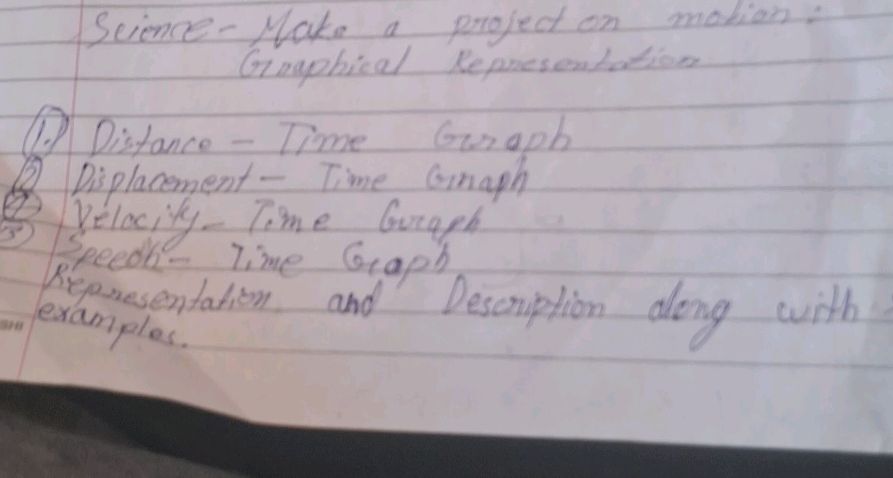 Science - Make a project on motion:
Graphical Representation
1. Distance - Time Graph
2 Displacement - Time Graph
Velocity - Time Graph
3 Speech - Time Graph
Representation and Description along with
examples.
SHI